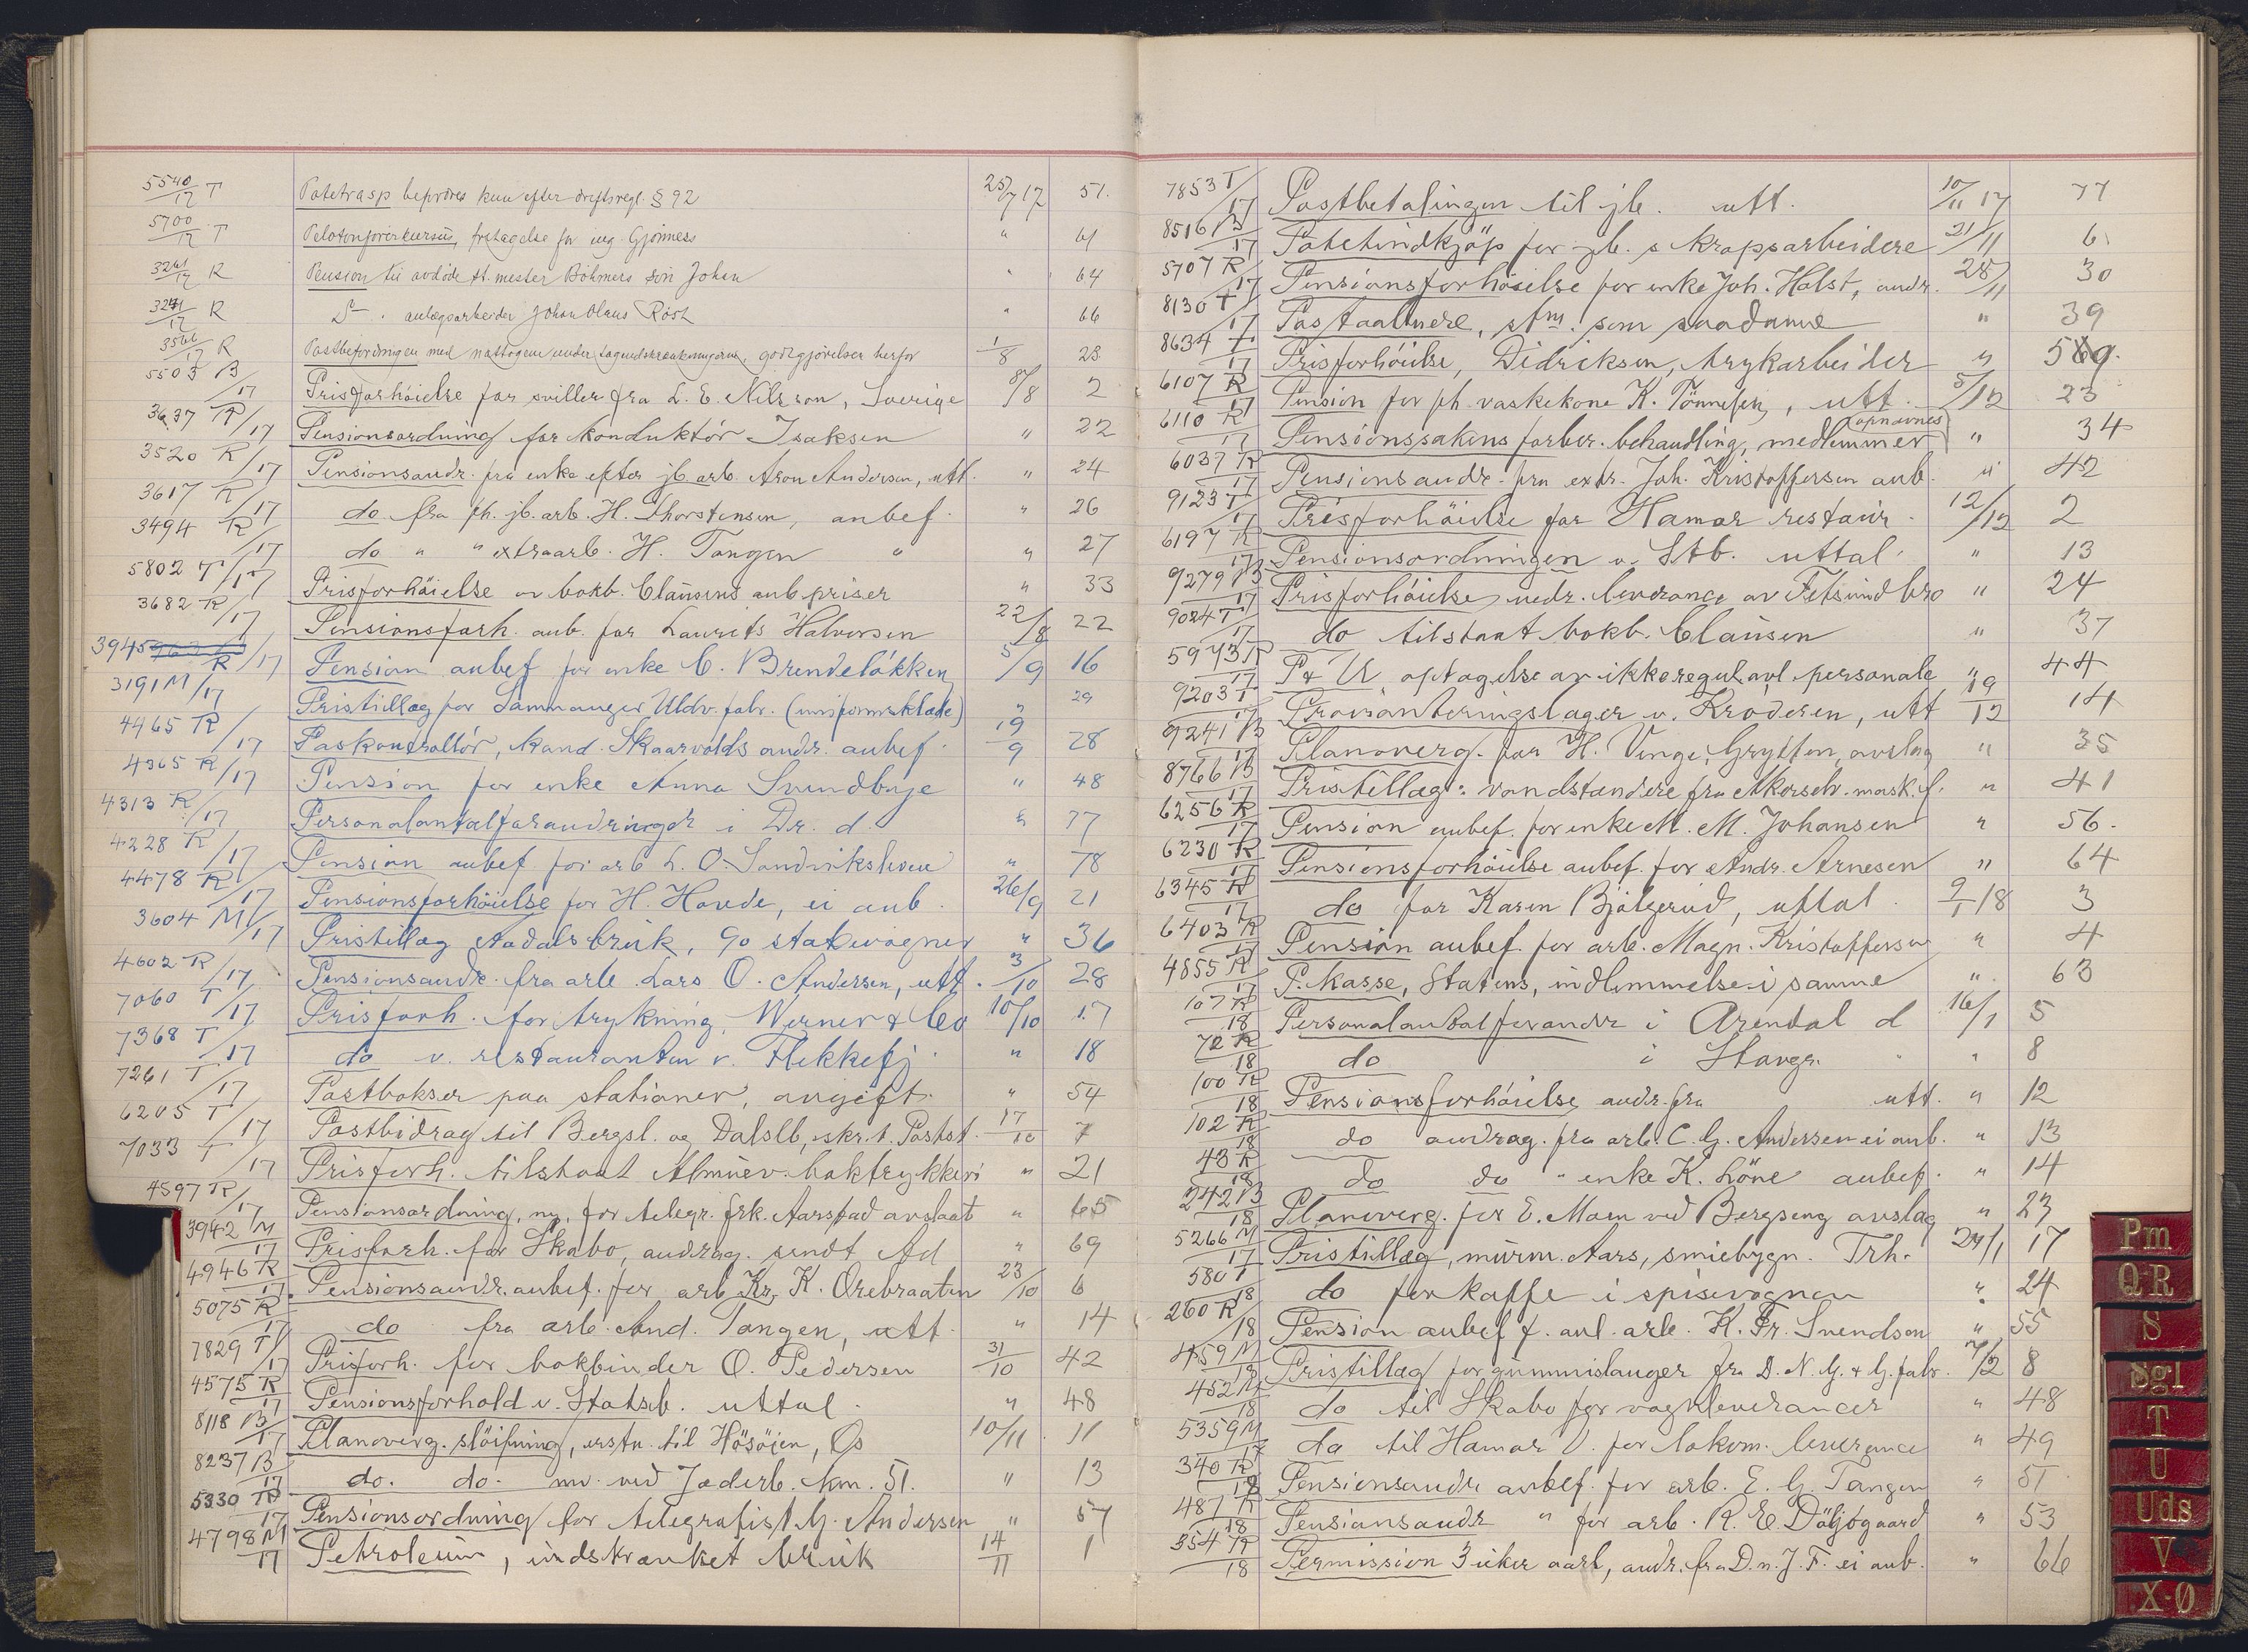 5540/17 T Potetrasp beprøves kun efter driftsregl. § 92 25/7 17 51.
5700/17 T Pelotonførerkursus, fritagelse for ing. Gjönnes " 61
3261/17 R Pension til avdöde st.mester Böhmers sön Johan " 64
3271/17 R D– " anlægsarbeider Johan Olaus Röst " 66
3561/17 R Postbefordringen med nattogene under togindskrænkningerne, godtgjörelser herfor 1/8 23
5503 B/17 Prisforhöielse for sviller fra L. E. Nilsson, Sverige 8/8 2
3637 R/17 Pensionsordning for konduktör Isaksen " 22
3520 R/17 Pensionsandr. fra enke efter jb. arb. Aron Andersen, utt. " 24
3617 R/17 do fra fh. jb. arb. H. Thorstensen, anbef. " 26
3494 R/17 do " " extraarb. H. Tangen " " 27
5802 T/17 Prisforhöielse av bokb. Clausens anb.priser " 33
3682 R/17 Pensionsforh. anb. for Laurits Halvorsen 22/8 22
3945 R/17 Pension anbef. for enke C. Brendelökken 5/9 16
3191 M/17 Pristillæg for Samnanger Uldv.fabr. (uniformsklæde) " 29
4465 R/17 Paskontrollör, kand. Skaarvolds andr. anbef. 19/9 28
4365 R/17 Pension for enke Anna Svendbye " 48
4313 R/17 Personalantalforandringer i Dr. d. " 77
4228 R/17 Pension anbef. for arb. L. O. Sandvikshven " 78
4478 R/17 Pensionsforhöielse for H. Hovde, ei anb. 26/9 21
3604 M/17 Pristillæg Aadalsbruk, 90 stakevogner " 36
4602 R/17 Pensionsandr. fra arb. Lars O. Andersen, utt. 3/10 28
7060 T/17 Prisforh. for trykning, Werner & Co 10/10 17
7368 T/17 do v. restauranten v. Flekkefj. " 18
7261 T/17 Postbokser paa stationer, avgift. " 54
6205 T/17 Postbidrag til Bergsl. og Dalslb, skr. t. Postst. 17/10 7
7033 T/17 Prisforh. tilstaat Almuev. boktrykkeri " 21
4597 R/17 Pensionsordning, ny, for telegr. frk. Aarstad avslaat " 65
3942 M/17 Prisforh. for Skabo, andrag. sendt Ad " 69
4946 R/17 Pensionsandr. anbef. for arb. Kr. K. Orebraaten 23/10 6
5075 R/17 do fra arb. And. Tangen, utt. " 14
7829 T/17 Prisforh. for bokbinder O. Pedersen 31/10 42
4575 R/17 Pensionsforhold v. Statsb. uttal. " 48
8118 B/17 Planoverg. slöifning, erstn. til Hösöien, Os 10/11 11
8237 B/17 do. do. nv. ved Jæderb. km. 51. " 13
5330 R/17 Pensionsordning for telegrafist G. Andersen " 57
4798 M/17 Petroleum, indskrænket bruk 14/11 1
7853 T/17 Postbetalingen til jb. utt. 10/11 17 77
8516 B/17 Potetindkjöp for jb. s kropsarbeidere 21/11 6
5707 R/17 Pensionsforhöielse for enke Joh. Holst, andr. 28/11 30
8130 T/17 Postaabnere, stm. som saadanne " 39
8634 T/17 Prisforhöielse, Didriksen, trykarbeider " 59.
6107 R/17 Pension for fh. vaskekone K. Tönnesen, utt. 5/12 23
6110 R/17 Pensionssakens forber. behandling, medlemmer opnævnes " 34
6037 R/17 Pensionsandr. fra extr. Joh. Kristoffersen anb. " 42
9123 T/17 Prisforhöielse for Hamar restaur. 12/12 2
6197 R/17 Pensionsordningen v. Stb. uttal. " 13
9279 B/17 Prisforhöielse vedr. leverance av Fetsund bro " 24
9024 T/17 do tilstaat bokb. Clausen " 37
5973 R/17 P & U optagelse av ikke regul. avl. personale " 44
9203 T/17 Provianteringslager v. Kröderen, utt 19/12 14
9241 B/17 Planoverg. for H. Vinge, Grytten, avslag " 35
8766 B/17 Pristillæg: vandstandere fra Akerselv. mask.f. " 41
6256 R/17 Pension anbef. for enke M. M. Johansen " 56.
6230 R/17 Pensionsforhöielse anbef. for Andr. Arnesen " 64
6345 R/17 do for Karen Bjölgerud, uttal. 9/1 18 3
6403 R/17 Pension anbef. for arb. Magn. Kristoffersen " 4
4855 R/17 P.kasse, Statens, indlemmelse i samme " 63
107 R/18 Personalantalforandr i Arendal d 16/1 5
72 R/18 do i Stavgr. " 8
100 R/18 Pensionsforhöielse, andr. fra utt. " 12
102 R/18 do andrag. fra arb. C. G. Andersen ei anb. " 13
43 R/18 do do " enke K. Löne anbef. " 14
242 B/18 Planoverg. for E. Moen ved Bergseng avslag " 23
5266 M/17 Pristillæg, murm. Aars, smiebygn. Trh. 24/1 17
580 T/18 do for kaffe i spisevognen " 24
260 R/18 Pension anbef. f. anl. arb. K. Fr. Svendsen " 55
459 M/18 Pristillæg for gummislanger fra D. N. G. & G. fabr. 7/2 8
452 M/18 do til Skabo for vognleverancer " 48
5359 M/17 do til Hamar V. for lokom. leverance " 49
340 R/18 Pensionsandr. anbef. for arb. E. G. Tangen " 51
487 R/18 Pensionsandr " for arb. R. E. Döljögaard " 53
354 R/18 Permission 3 uker aarl, andr. fra D. n. J. F. ei anb. " 66
Pm
Q-R
S
Sgl
T
U
Uds
V
X-Ø